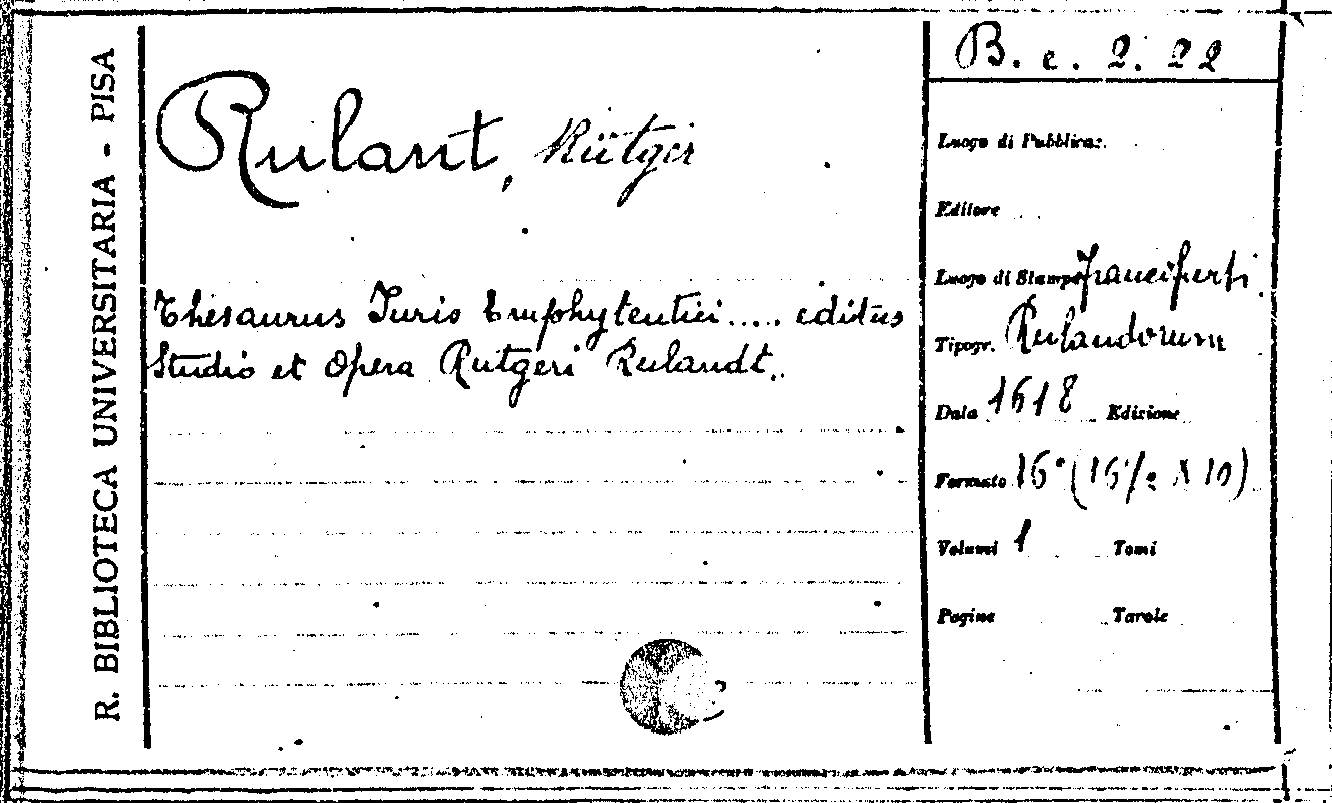 R. BIBLIOTECA UNIVERSITARIA - PISA
B. c. 2. 22
Rulant, Rütger
Thesaurus Iuris Emphyteutici.... editus
Studio et Opera Rutgeri Rulandt.
Luogo di Pubblicaz.
Editore
Luogo di Stampa Francifurti
Tipogr. Rulandorum
Data 1618 Edizione
Formato 16° (16 1/2 X 10)
Volumi 1 Tomi
Pagine Tavole